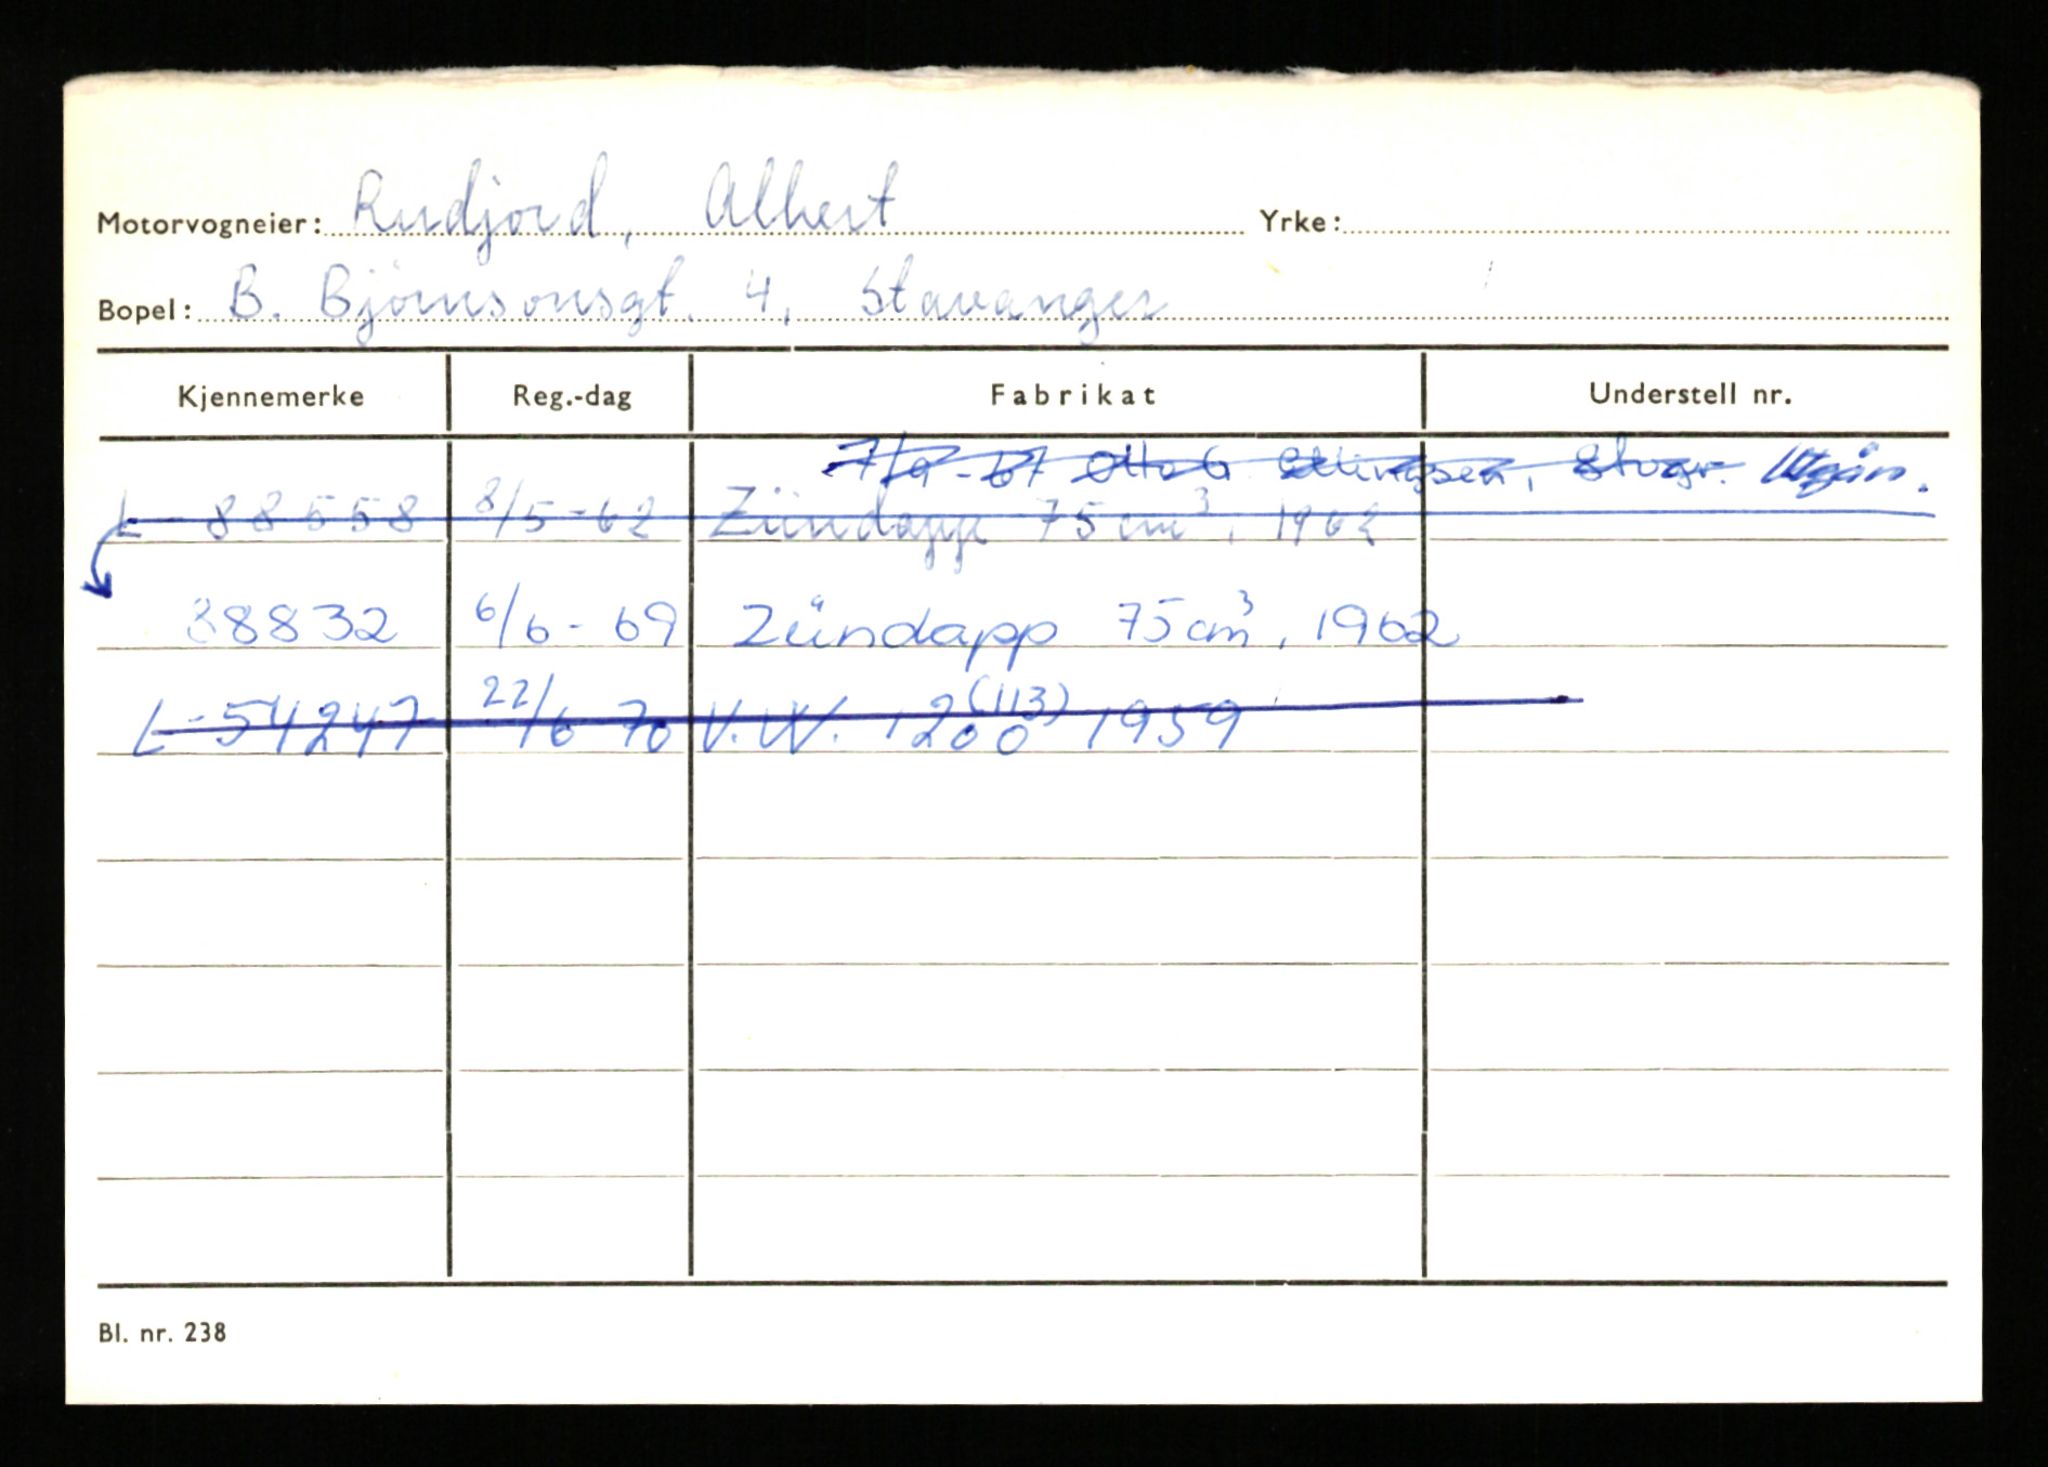 Motorvogneier: Rudjord, Albert Yrke:
Bopel: B. Björnsonsgt. 4, Stavanger
Kjennemerke Reg.-dag Fabrikat Understell nr.
7/9-67 Otto G. Ellingsen, Stvgr. Utgår.
L-88558 8/5-62 Zündapp 75 cm³, 1962
88832 6/6-69 Zündapp 75 cm³, 1962
L-54247 22/6 70 V.W. 1200 (113) 1959
Bl. nr. 238